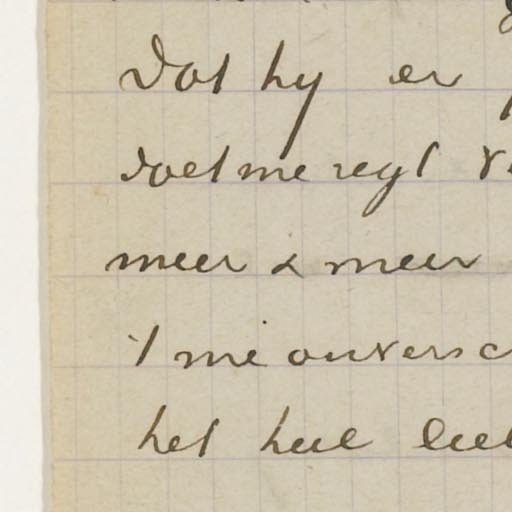 Dat hy er
doet me regt
meer & meer
't me onvers
het heel